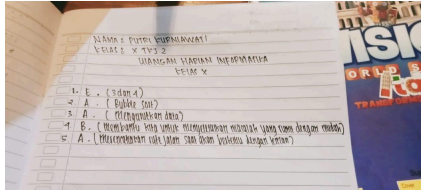 NAMA : PUTRI KURNIAWATI
KELAS : X TKJ 2
ULANGAN HARIAN INFORMATIKA
KELAS X
1. E. (3 dan 4)
2 A. (Bubble Sort)
3 A. (Mengurutkan data)
4 B. (Membantu kita untuk menyelesaikan masalah yang rumit dengan mudah)
5 A. (Merencanakan rute jalan saat akan bertemu dengan teman)
ISI
ORLD S
TRANSFORM
Cover